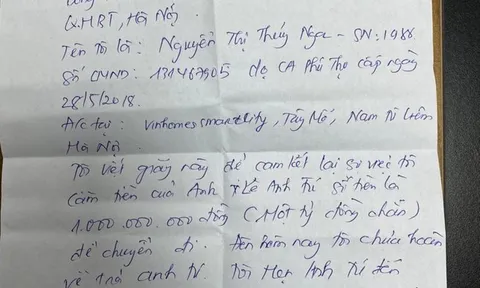 Q.HBT, Hà Nội
Tên tôi là: Nguyễn Thị Thúy Nga - SN: 1988
Số CMND: 131467905 do CA Phú Thọ cấp ngày
28/5/2018.
Đ/c tại: Vinhomes smartcity, Tây Mỗ, Nam Từ Liêm
Hà Nội
Tôi viết giấy này để cam kết lại sự việc tôi
cầm tiền của Anh Lê Anh Tú số tiền là
1.000.000.000 đồng (Một tỷ đồng chẵn)
để chuyển đi. hôm nay tôi chưa hoàn
về trả anh tú. Tôi Hẹn Anh Tú đến